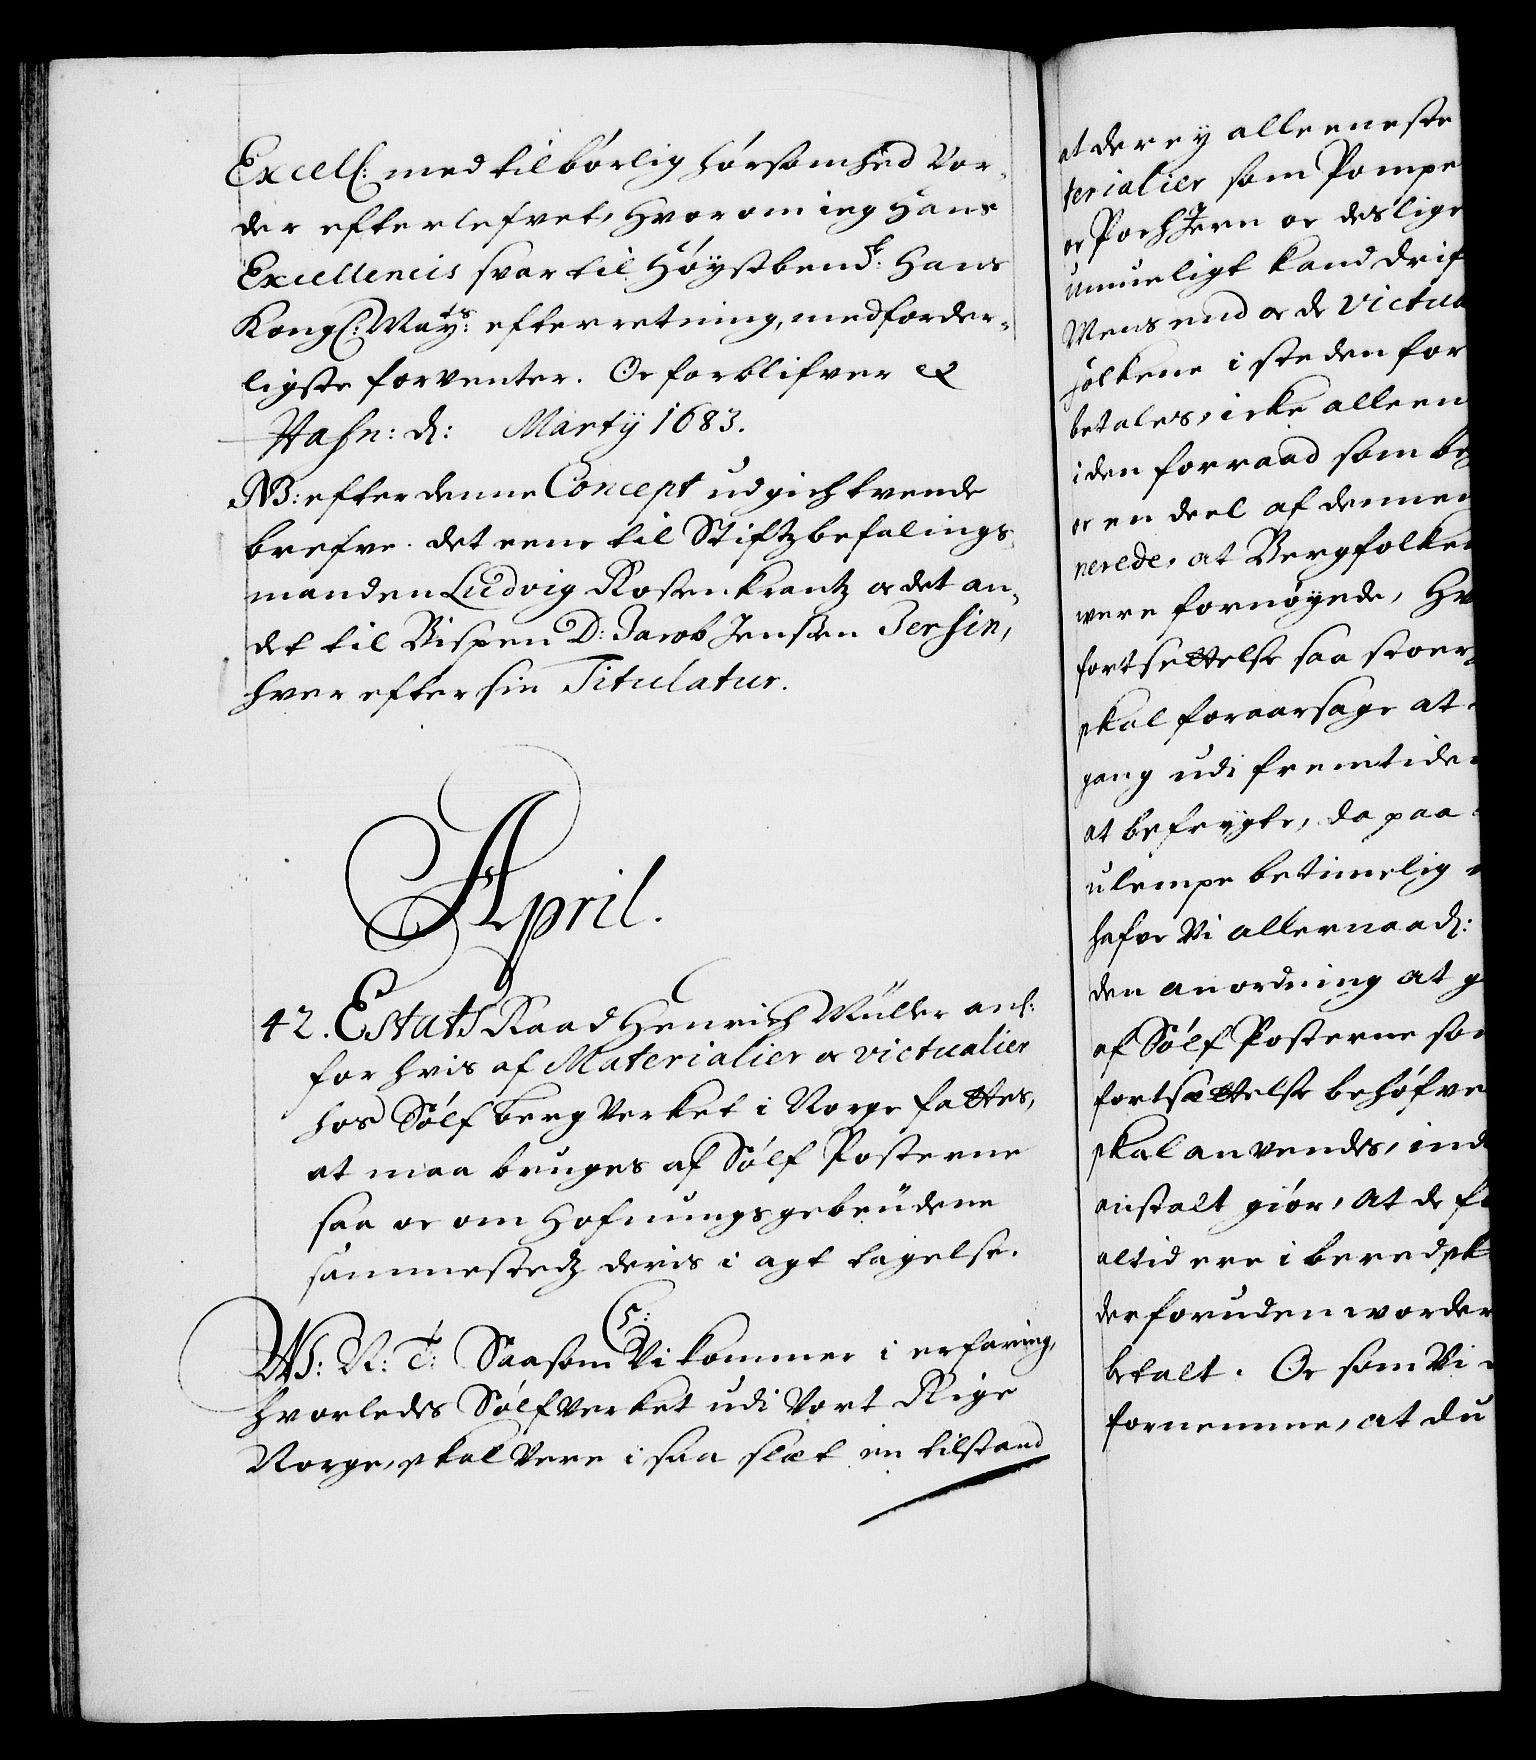 Excell: med tilbørlig hørsomhed Vor-
der efterlefvet, hvorom ieg Hans
Excellencis svar til Høystbemt: Hans
Kongl: Mayts: efterretning, med forder-
ligste forventer. Oc forblifver &
Hafn: d: Martij 1683.
NB: efter denne Concept udgich tvende
brefve. det eene til Stiftzbefalings-
manden Ludvig Rosenkrantz oc det an-
det til Bispen D: Jacob Jensen Jersin,
hver efter sin Titulatur.
April.
42. Estats Raad Henrich Müller anl:
for hvis af Materialier oc victualier
hos Sølf bergverket i Norge fattes,
at maa bruges af Sølf Posterne
saa oc om Hofnungsgebeüdene
sammestedz deris i agt tagelse.
C5:
W: N: T: Saasom Vi kommer i erfaring,
hvorledes Sølfverket udi Vort Rige
Norge, skal Vere i saa slæt en tilstand
at der ey alleeneste
terialier som Pompe
oc Poch Jern oc deslige
umueligt kand drif
Mens end oc de victua
folkene i steden for
betales, icke alleen
i den forraad som be
oc en deel af dennem
nerede, at Bergfolken
were fornøyede, Hv
fortsettelse saa stoer
skal foraarsage at
gang udi fremtiden
at befrygte, da paa
ulempe betimelig
hafve Vi allernaad:
den anordning at g
af Sølf Posterne som
fortsættelse behøfve
skal anvendes, ind
anstalt giør, At de f
altid ere i beredsk
derforuden worder
betalt. Oc som Vi
fornemme, at du